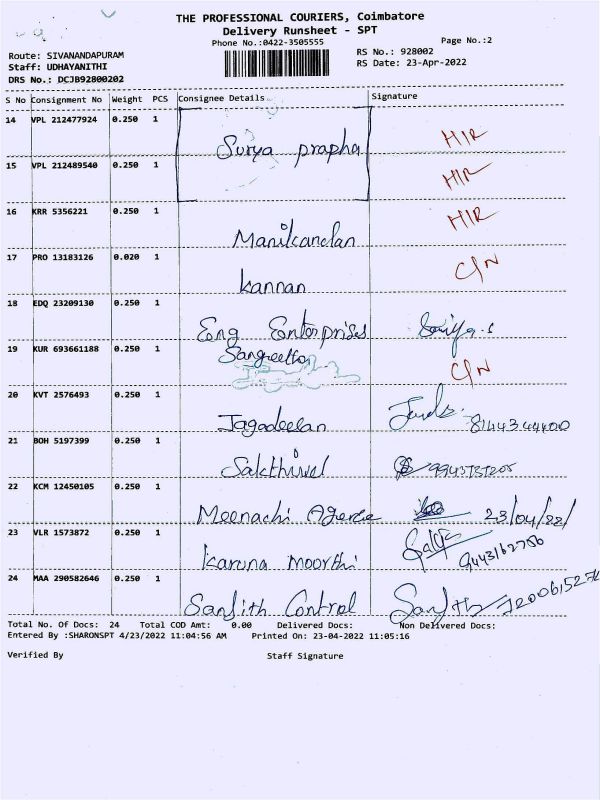 THE PROFESSIONAL COURIERS, Coimbatore
Delivery Runsheet - SPT
Phone No.:0422-3505555
Page No.:2
Route: SIVANANDAPURAM
RS No.: 928002
Staff: UDHAYANITHI
RS Date: 23-Apr-2022
DRS No.: DCJB92800202
S No Consignment No Weight PCS Consignee Details Signature
14 VPL 212477924 0.250 1 Surya prapha H/R
15 VPL 212489540 0.250 1 H/R
16 KRR 5356221 0.250 1 Manikandan H/R
17 PRO 13183126 0.020 1 kannan C/N
18 EDQ 23209130 0.250 1 Eng Enterprises
19 KUR 693661188 0.250 1 Sangeetha C/N
20 KVT 2576493 0.250 1 Jagadeelan 8144344400
21 BOH 5197399 0.250 1 Sakthivel
22 KCM 12450105 0.250 1 Meenachi 23/04/22/
23 VLR 1573872 0.250 1 Karuna moorthi 9443162756
24 MAA 290582646 0.250 1 Sanjith Control Sanjith
Total No. Of Docs: 24 Total COD Amt: 0.00 Delivered Docs: Non Delivered Docs:
Entered By :SHARONSPT 4/23/2022 11:04:56 AM Printed On: 23-04-2022 11:05:16
Verified By Staff Signature